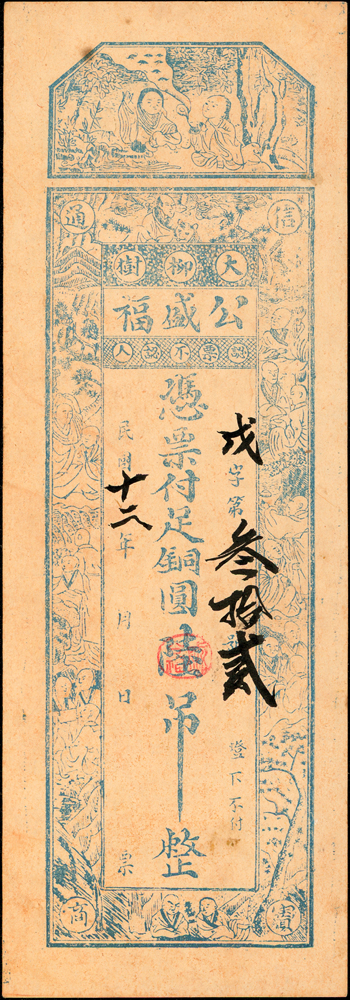 信
通
大柳樹
公盛福
認票不認人
戊字第叁拾貳號
燈下不付
憑票付足銅圓陸吊整
民國十二年 月 日 票
寶
商